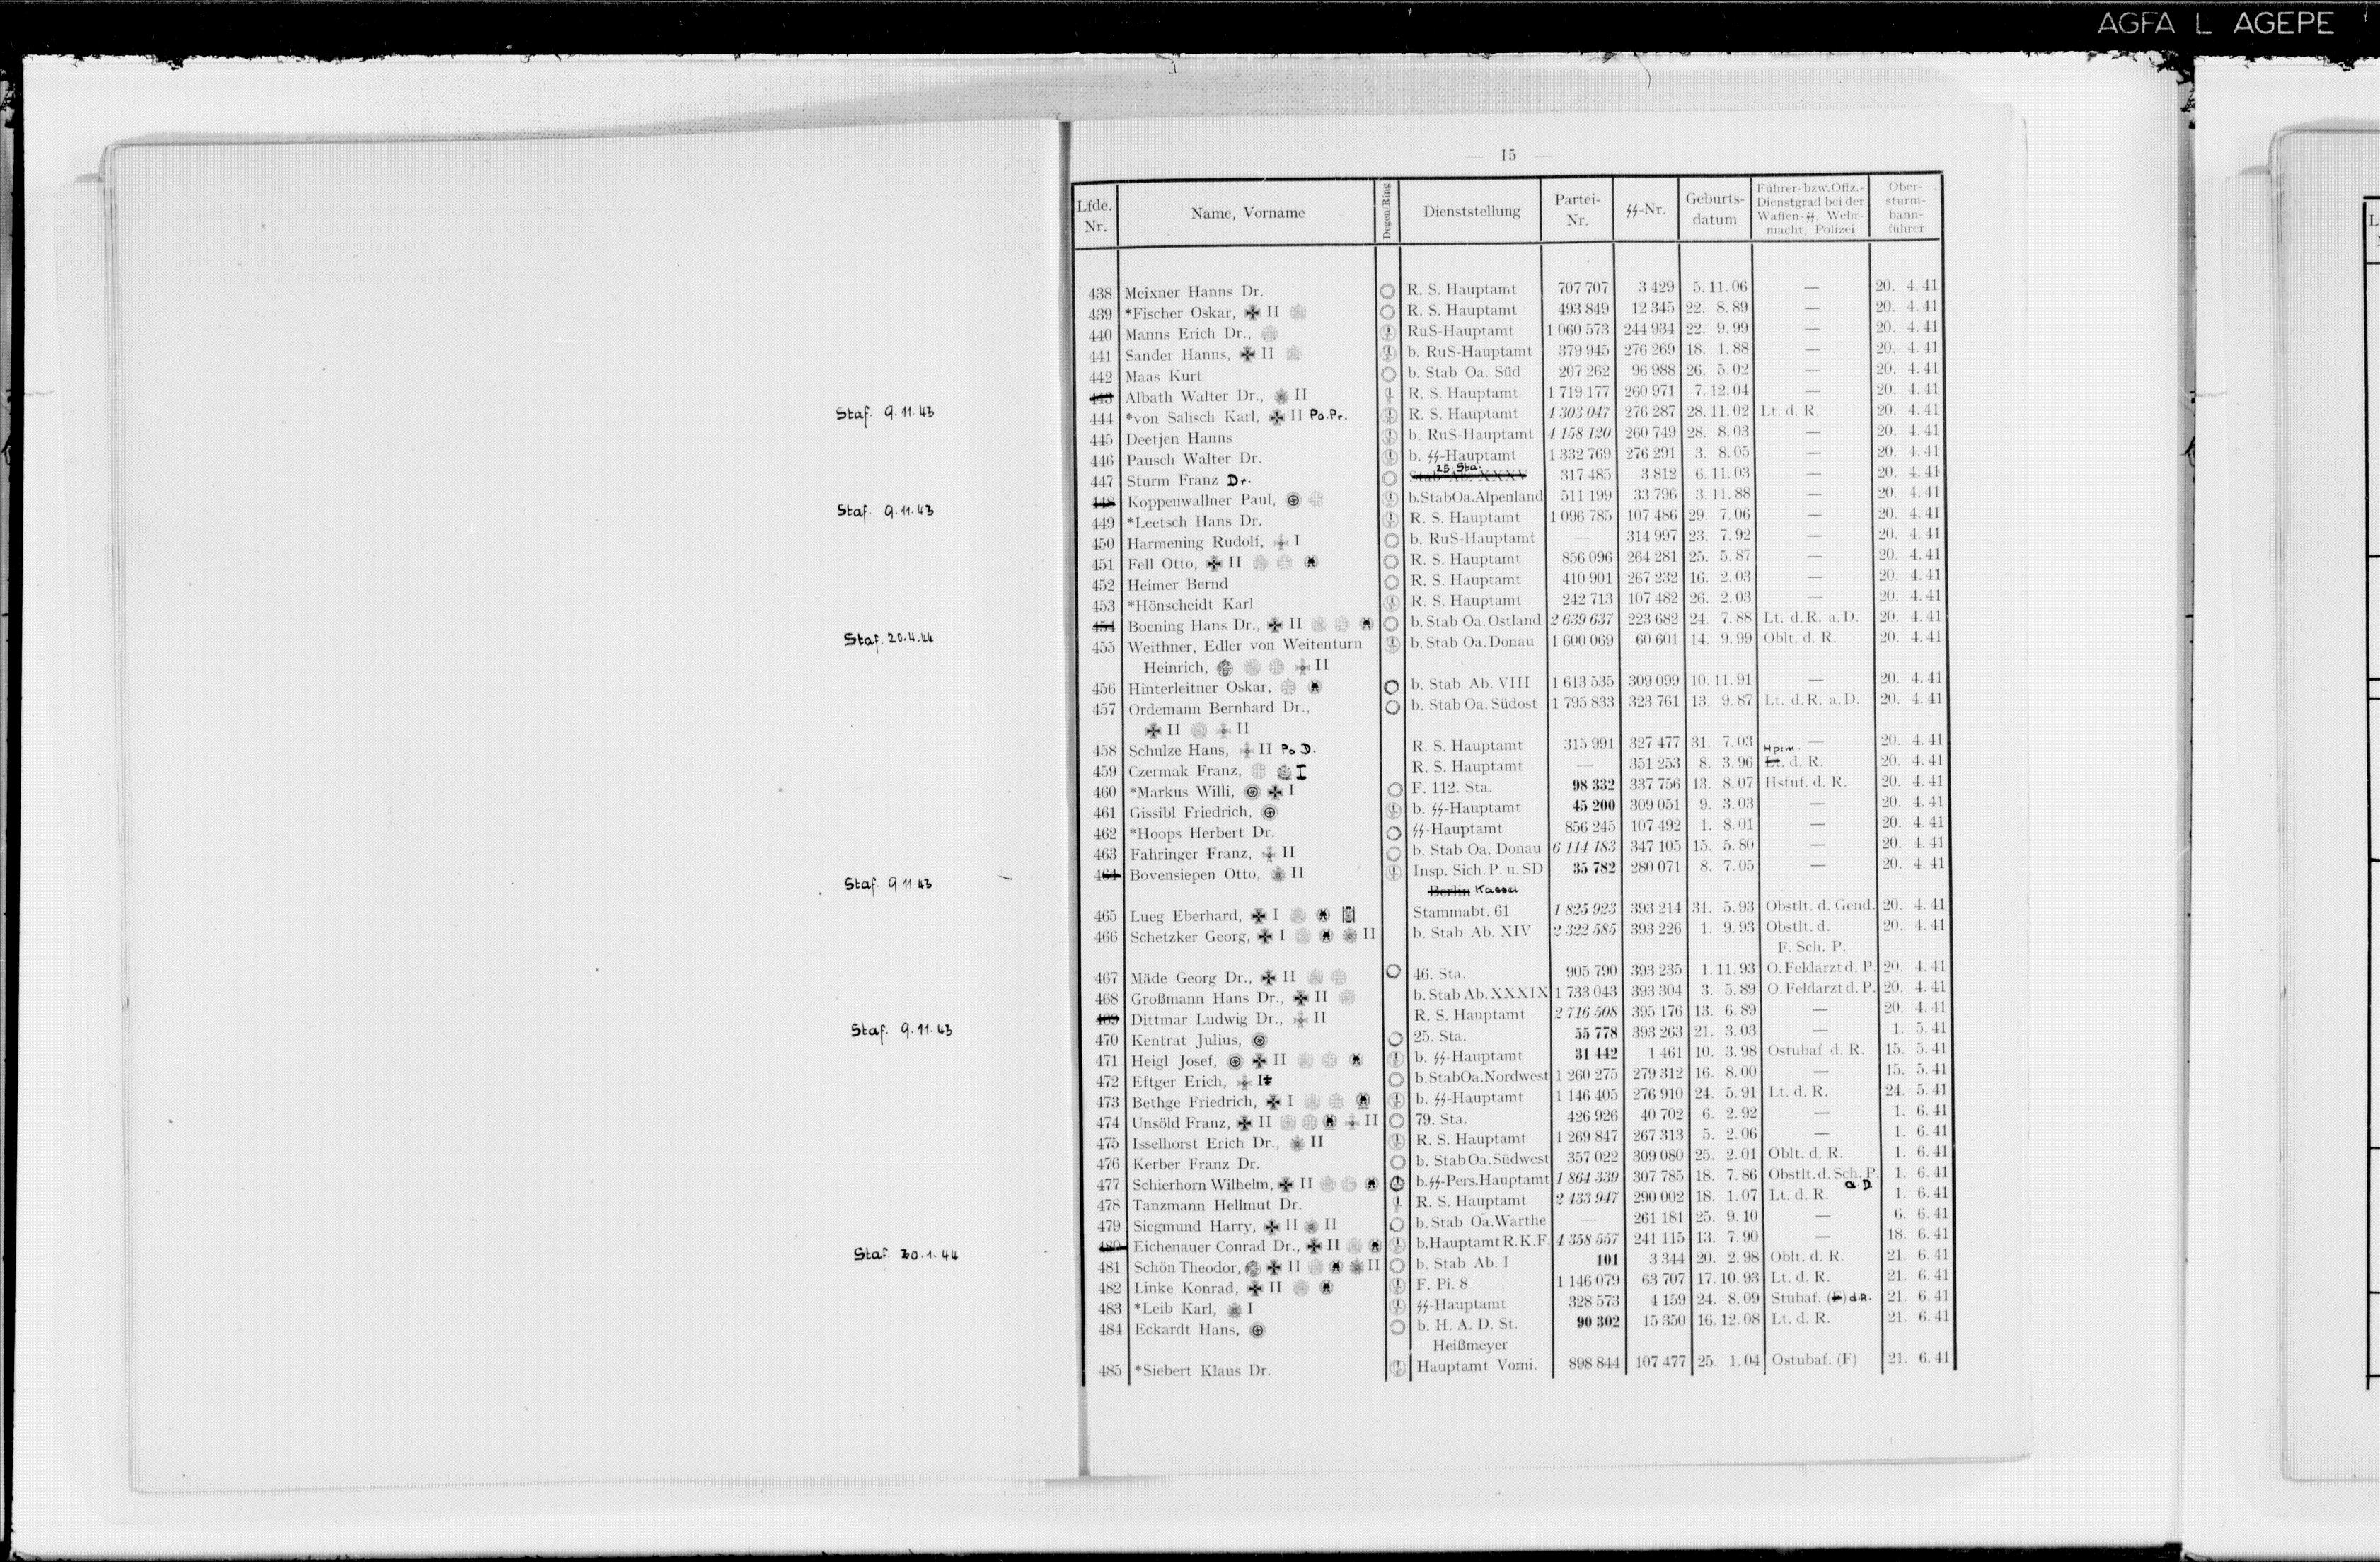 AGFA L AGEPE
— 15 —
Lfde. Nr. Name, Vorname Degen/Ring Dienststellung Partei-Nr. ᛋᛋ-Nr. Geburts-datum Führer- bzw. Offz.-Dienstgrad bei der Waffen-ᛋᛋ, Wehr-macht, Polizei Ober-sturm-bann-führer
438 Meixner Hanns Dr. R. S. Hauptamt 707 707 3 429 5. 11. 06 — 20. 4. 41
439 *Fischer Oskar, II R. S. Hauptamt 493 849 12 345 22. 8. 89 — 20. 4. 41
440 Manns Erich Dr., RuS-Hauptamt 1 060 573 244 934 22. 9. 99 — 20. 4. 41
441 Sander Hanns, II b. RuS-Hauptamt 379 945 276 269 18. 1. 88 — 20. 4. 41
442 Maas Kurt b. Stab Oa. Süd 207 262 96 988 26. 5. 02 — 20. 4. 41
Staf. 9.11.43 443 Albath Walter Dr., II R. S. Hauptamt 1 719 177 260 971 7. 12. 04 — 20. 4. 41
444 *von Salisch Karl, II Po.Pr. R. S. Hauptamt 4 303 047 276 287 28. 11. 02 Lt. d. R. 20. 4. 41
445 Deetjen Hanns b. RuS-Hauptamt 4 158 120 260 749 28. 8. 03 — 20. 4. 41
446 Pausch Walter Dr. b. ᛋᛋ-Hauptamt 1 332 769 276 291 3. 8. 05 — 20. 4. 41
25. Sta.
447 Sturm Franz Dr. Stab Ab. XXXV 317 485 3 812 6. 11. 03 — 20. 4. 41
Staf. 9.11.43 448 Koppenwallner Paul, b. Stab Oa. Alpenland 511 199 33 796 3. 11. 88 — 20. 4. 41
449 *Leetsch Hans Dr. R. S. Hauptamt 1 096 785 107 486 29. 7. 06 — 20. 4. 41
450 Harmening Rudolf, I b. RuS-Hauptamt — 314 997 23. 7. 92 — 20. 4. 41
451 Fell Otto, II R. S. Hauptamt 856 096 264 281 25. 5. 87 — 20. 4. 41
452 Heimer Bernd R. S. Hauptamt 410 901 267 232 16. 2. 03 — 20. 4. 41
453 *Hönscheidt Karl R. S. Hauptamt 242 713 107 482 26. 2. 03 — 20. 4. 41
Staf. 20.4.44 454 Boening Hans Dr., II b. Stab Oa. Ostland 2 639 637 223 682 24. 7. 88 Lt. d. R. a. D. 20. 4. 41
455 Weithner, Edler von Weitenturn b. Stab Oa. Donau 1 600 069 60 601 14. 9. 99 Oblt. d. R. 20. 4. 41
Heinrich, II
456 Hinterleitner Oskar, b. Stab Ab. VIII 1 613 535 309 099 10. 11. 91 — 20. 4. 41
457 Ordemann Bernhard Dr., b. Stab Oa. Südost 1 795 833 323 761 13. 9. 87 Lt. d. R. a. D. 20. 4. 41
II II
458 Schulze Hans, II Po D. R. S. Hauptamt 315 991 327 477 31. 7. 03 — 20. 4. 41
Hptm.
459 Czermak Franz, I R. S. Hauptamt — 351 253 8. 3. 96 Lt. d. R. 20. 4. 41
460 *Markus Willi, I F. 112. Sta. 98 332 337 756 13. 8. 07 Hstuf. d. R. 20. 4. 41
461 Gissibl Friedrich, b. ᛋᛋ-Hauptamt 45 200 309 051 9. 3. 03 — 20. 4. 41
462 *Hoops Herbert Dr. ᛋᛋ-Hauptamt 856 245 107 492 1. 8. 01 — 20. 4. 41
463 Fahringer Franz, II b. Stab Oa. Donau 6 114 183 347 105 15. 5. 80 — 20. 4. 41
Staf. 9.11.43 464 Bovensiepen Otto, II Insp. Sich. P. u. SD 35 782 280 071 8. 7. 05 — 20. 4. 41
Berlin Kassel
465 Lueg Eberhard, I Stammabt. 61 1 825 923 393 214 31. 5. 93 Obstlt. d. Gend. 20. 4. 41
466 Schetzker Georg, I II b. Stab Ab. XIV 2 322 585 393 226 1. 9. 93 Obstlt. d. 20. 4. 41
F. Sch. P.
467 Mäde Georg Dr., II 46. Sta. 905 790 393 235 1. 11. 93 O. Feldarzt d. P. 20. 4. 41
468 Großmann Hans Dr., II b. Stab Ab. XXXIX 1 733 043 393 304 3. 5. 89 O. Feldarzt d. P. 20. 4. 41
Staf. 9.11.43 469 Dittmar Ludwig Dr., II R. S. Hauptamt 2 716 508 395 176 13. 6. 89 — 20. 4. 41
470 Kentrat Julius, 25. Sta. 55 778 393 263 21. 3. 03 — 1. 5. 41
471 Heigl Josef, II b. ᛋᛋ-Hauptamt 31 442 1 461 10. 3. 98 Ostubaf d. R. 15. 5. 41
472 Eftger Erich, I b. Stab Oa. Nordwest 1 260 275 279 312 16. 8. 00 — 15. 5. 41
473 Bethge Friedrich, I b. ᛋᛋ-Hauptamt 1 146 405 276 910 24. 5. 91 Lt. d. R. 24. 5. 41
474 Unsöld Franz, II II 79. Sta. 426 926 40 702 6. 2. 92 — 1. 6. 41
475 Isselhorst Erich Dr., II R. S. Hauptamt 1 269 847 267 313 5. 2. 06 — 1. 6. 41
476 Kerber Franz Dr. b. Stab Oa. Südwest 357 022 309 080 25. 2. 01 Oblt. d. R. 1. 6. 41
477 Schierhorn Wilhelm, II b. ᛋᛋ-Pers. Hauptamt 1 864 339 307 785 18. 7. 86 Obstlt. d. Sch. P. a.D. 1. 6. 41
478 Tanzmann Hellmut Dr. R. S. Hauptamt 2 433 947 290 002 18. 1. 07 Lt. d. R. 1. 6. 41
479 Siegmund Harry, II II b. Stab Oa. Warthe — 261 181 25. 9. 10 — 6. 6. 41
Staf. 30.1.44 480 Eichenauer Conrad Dr., II b. Hauptamt R. K. F. 4 358 557 241 115 13. 7. 90 — 18. 6. 41
481 Schön Theodor, II II b. Stab Ab. I 101 3 344 20. 2. 98 Oblt. d. R. 21. 6. 41
482 Linke Konrad, II F. Pi. 8 1 146 079 63 707 17. 10. 93 Lt. d. R. 21. 6. 41
483 *Leib Karl, I ᛋᛋ-Hauptamt 328 573 4 159 24. 8. 09 Stubaf. (F) d.R. 21. 6. 41
484 Eckardt Hans, b. H. A. D. St. 90 302 15 350 16. 12. 08 Lt. d. R. 21. 6. 41
Heißmeyer
485 *Siebert Klaus Dr. Hauptamt Vomi. 898 844 107 477 25. 1. 04 Ostubaf. (F) 21. 6. 41